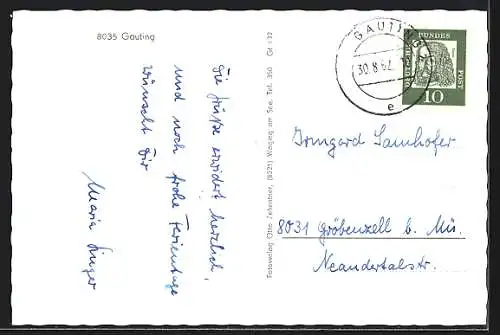 8035 Gauting
Die Grüße erwidert herzlich,
und noch frohe Ferientage
wünscht Dir
Maria Singer
Fotoverlag Otto Zehentner, (8221) Waging am See, Tel. 350 Gt 132
GAUTING
30.8.62
e
DEUTSCHE BUNDESPOST
10
Irmgard Samhofer
8031 Gröbenzell b. Mü.
Neandertalstr.